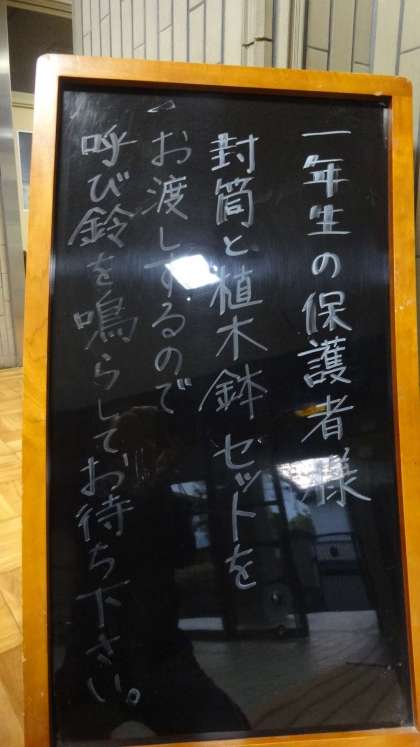 一年生の保護者様
封筒と植木鉢セットを
お渡しするので
呼び鈴を鳴らしてお待ち下さい。